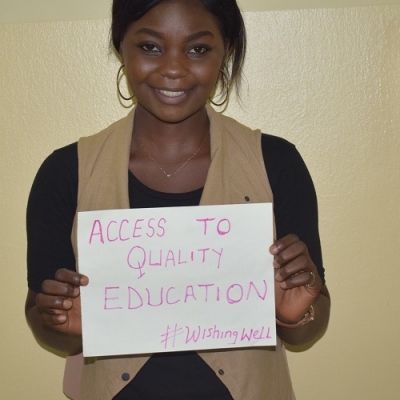 ACCESS TO
QUALITY
EDUCATION
#WishingWell